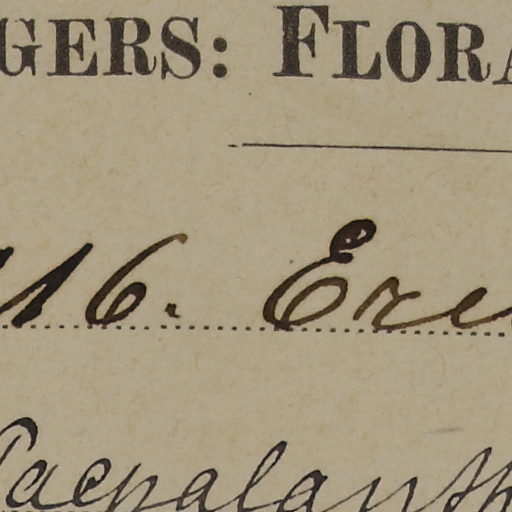 GERS: FLORA
16. Ere
Paepalanth